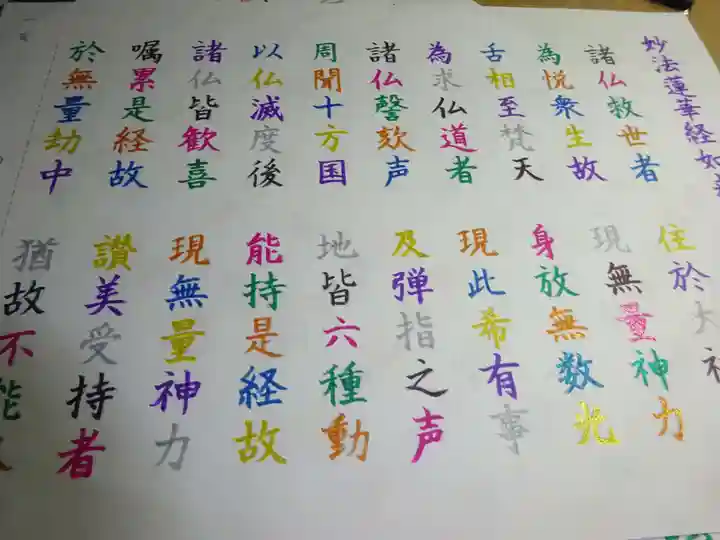 妙法蓮華経如
諸仏救世者
住於大神
為悦衆生故
現無量神力
舌相至梵天
身放無数光
為求仏道者
現此希有事
諸仏謦欬声
及弾指之声
周聞十方国
地皆六種動
以仏滅度後
能持是経故
諸仏皆歓喜
現無量神力
嘱累是経故
讃美受持者
於無量劫中
猶故不能